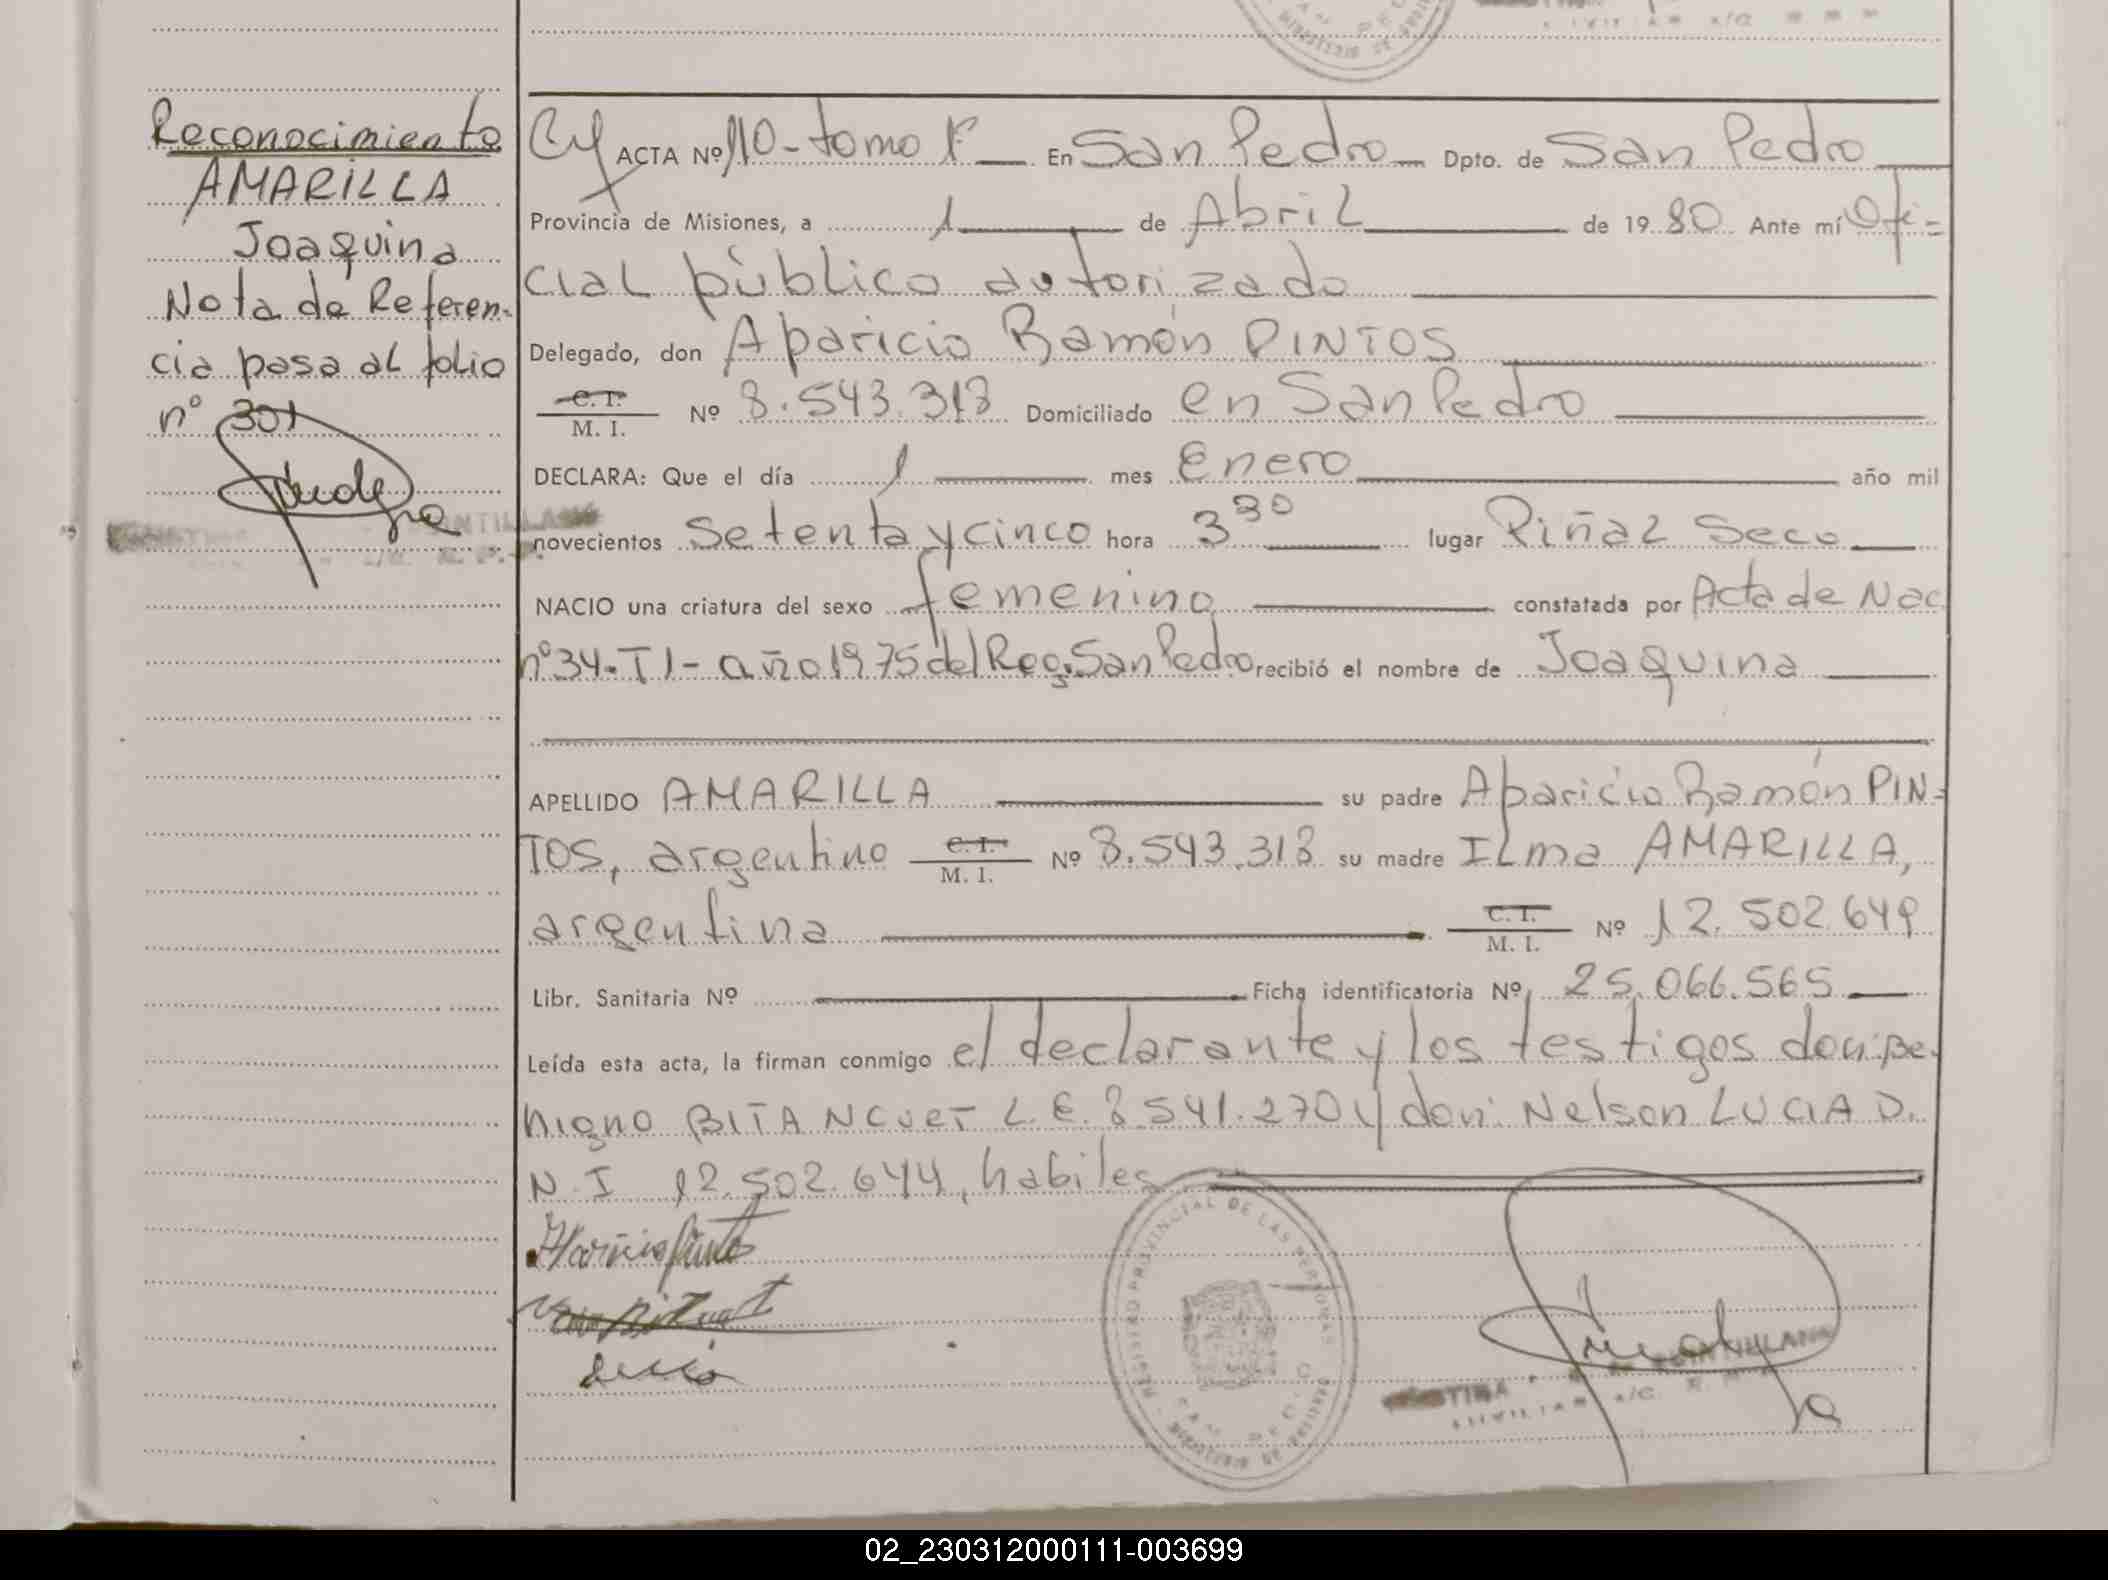 Reconocimiento
AMARILLA
Joaquina
Nota de Referen-
cia pasa al folio
nº 301
ACTA Nº 110 - tomo 1º En San Pedro Dpto. de San Pedro
Provincia de Misiones, a 1 de Abril de 1980 Ante mí Ofi-
cial público autorizado
Delegado, don Aparicio Ramón PINTOS
C. I.
M. I. Nº 8.543.313 Domiciliado en San Pedro
DECLARA: Que el día 1 mes Enero año mil
novecientos setenta y cinco hora 3 30 lugar Piñal Seco
NACIO una criatura del sexo femenino constatada por Acta de Nac.
nº 34 - T I - año 1975 del Reg. San Pedro recibió el nombre de Joaquina
APELLIDO AMARILLA su padre Aparicio Ramón PIN-
TOS, argentino C. I. M. I. Nº 8.543.313 su madre Ilma AMARILLA,
argentina C. I. M. I. Nº 12.502.649
Libr. Sanitaria Nº Ficha identificatoria Nº 25.066.565
Leída esta acta, la firman conmigo el declarante y los testigos don: Be-
nigno BITANCUET L.E. 8.541.270 y don: Nelson LUCIA D.
N.I 12.502.644, habiles
REGISTRO PROVINCIAL DE LAS PERSONAS
02_230312000111-003699